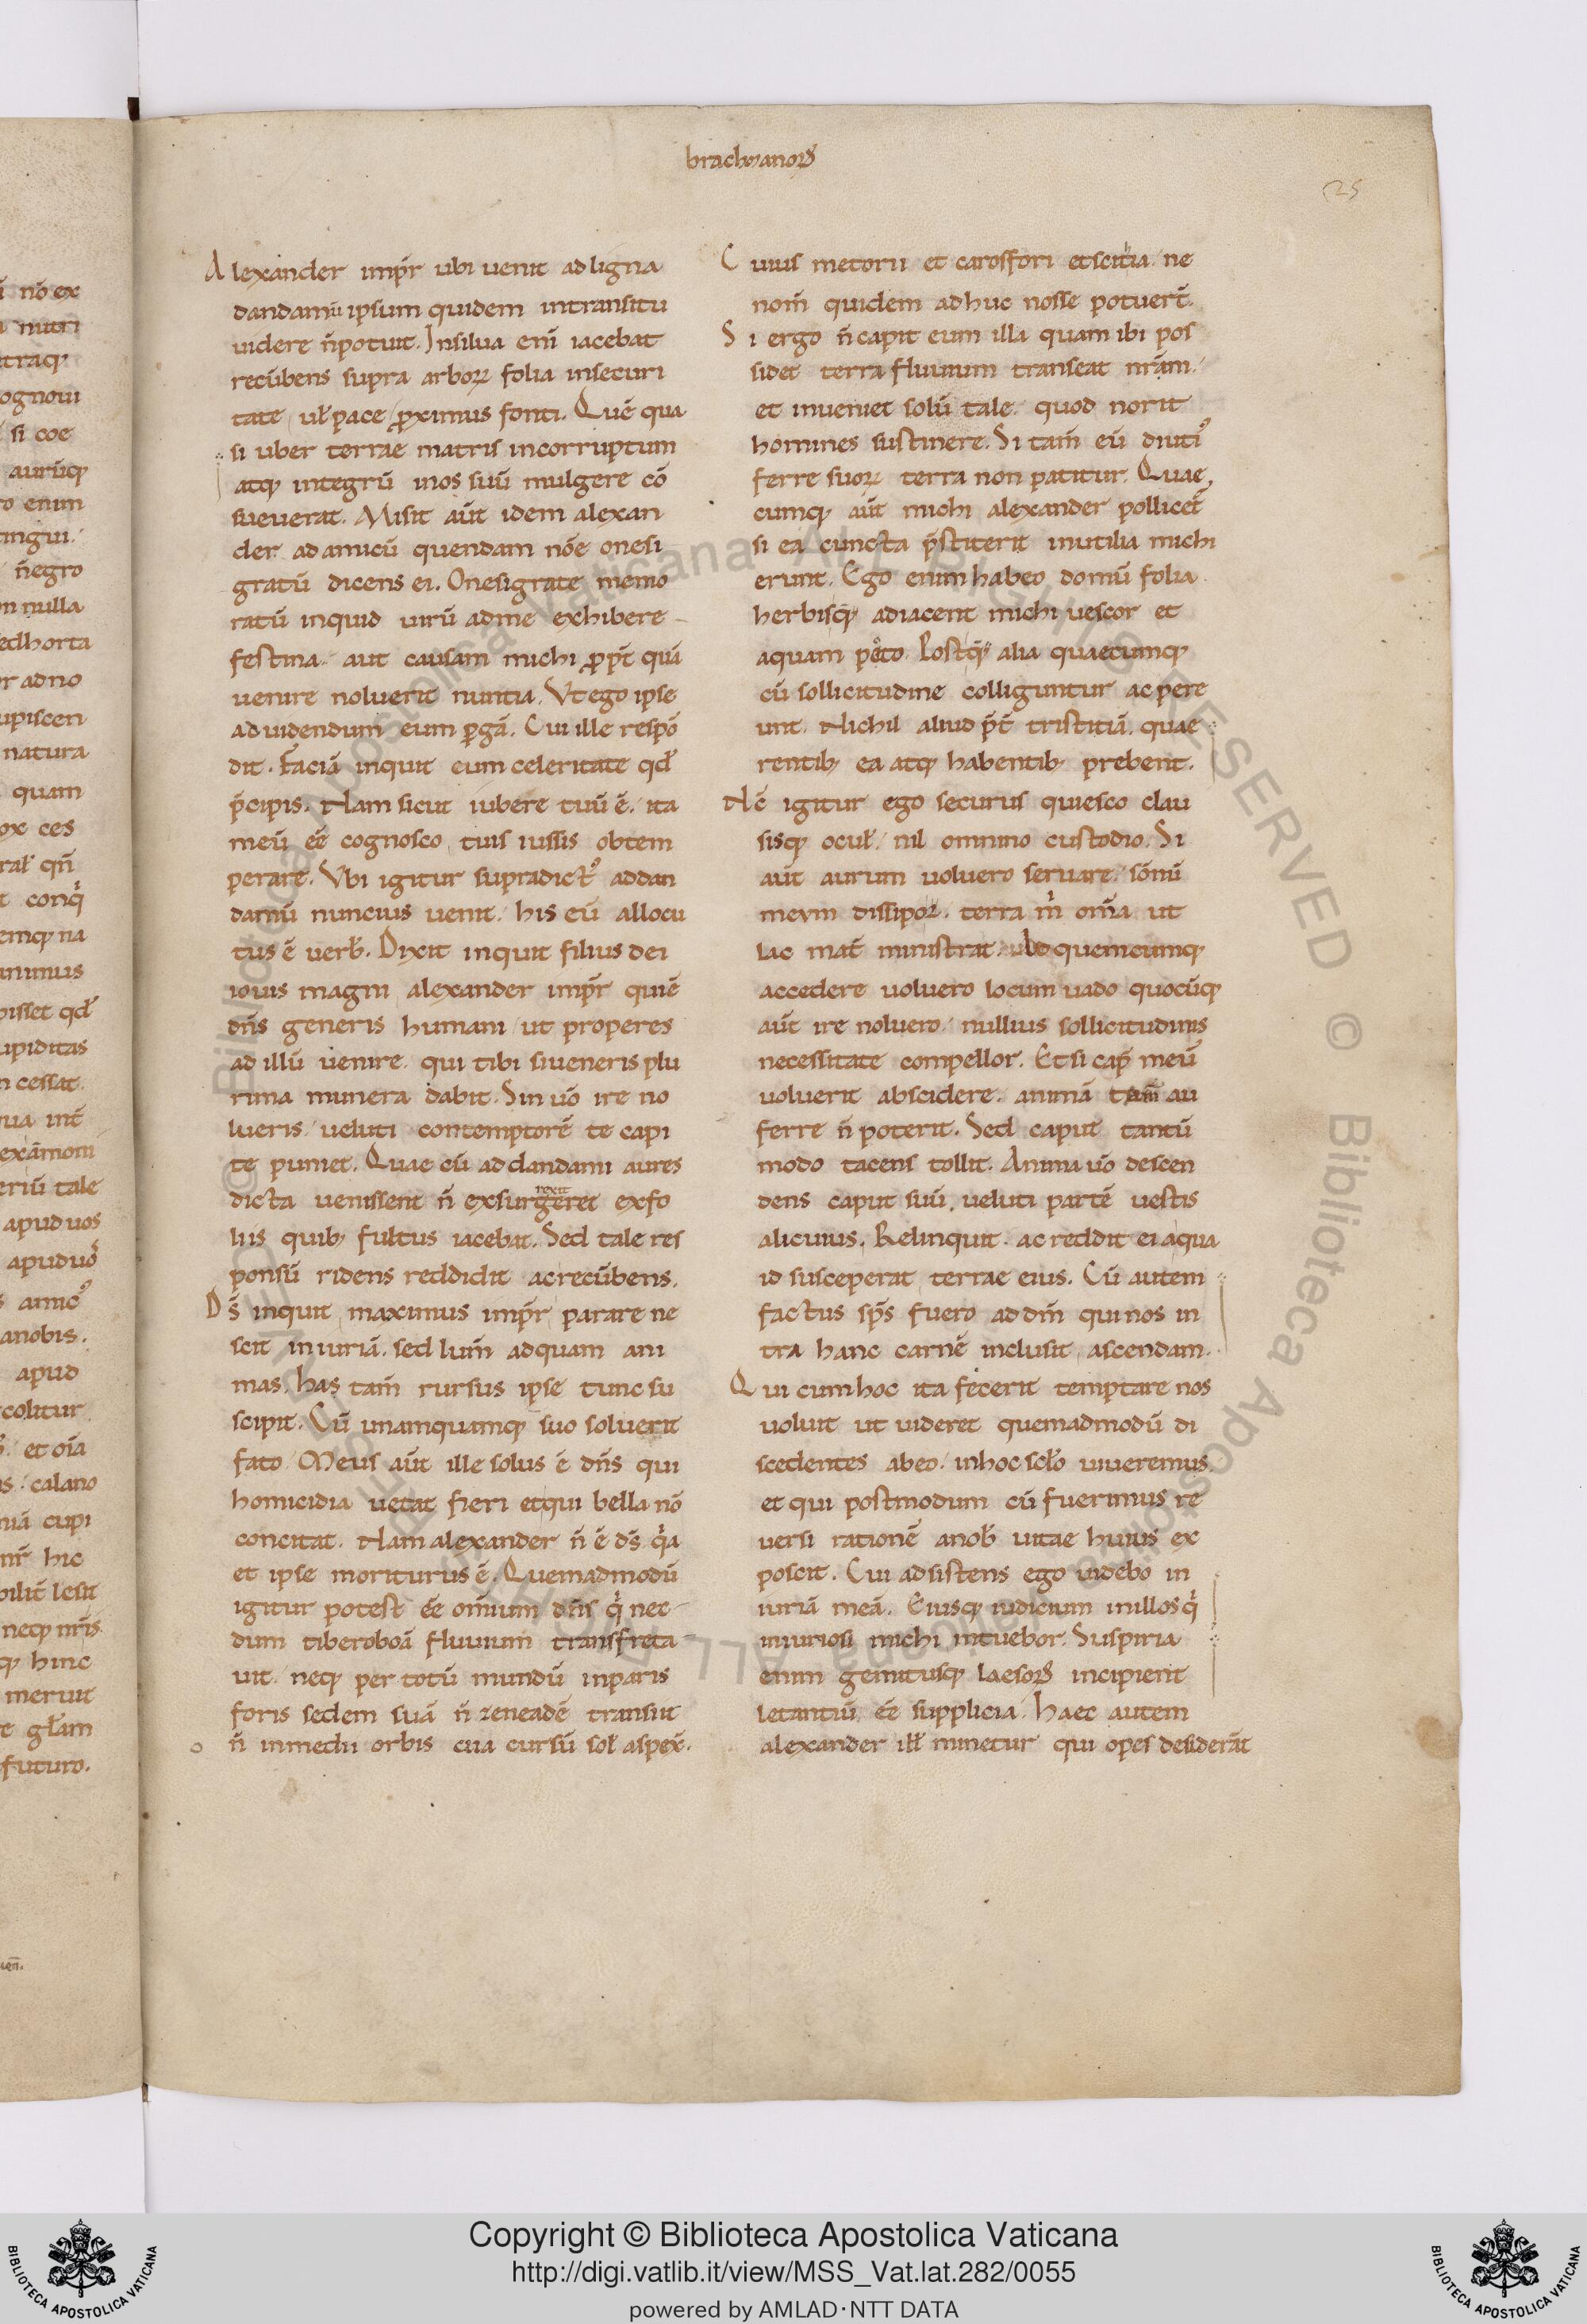 brachmanoꝝ
25
Alexander imp̄r ubi uenit ad ligna
dandamū ipsum quidem intransitu
uidere n̄ potuit. Insilua eni̅ iacebat
recūbens supra arboꝝ folia insecuri
tate ul̵ pace ꝓximus fonti. Quē qua
si uber terrae matris incorruptum
atq; integrū inos suū mulgere cō
sueuerat. Misit aūt idem alexan
der ad amicū quendam nōe onesi
gratū dicens ei. Onesigrate memo
ratū inquid uirū adme exhibere
festina. aut causam michi ꝓpt̄ quā
uenire noluerit nuntia. Vt ego ipse
aduidendum eum ꝑgā. Cui ille respō
dit. Faciā inquit eum celeritate qd̵
p̄cipis. Nam sicut iubere tuū ē. ita
meū eē cognosco tuis iussis obtem
perare. Vbi igitur supradictꝰ addan
damū nuncius uenit. his eū allocu
tus ē uerb̵. Dixit inquit filius dei
iouis magni alexander imp̄r quiē
dn̄s generis humani ut properes
ad illū uenire. qui tibi siueneris plu
rima munera dabit. Sin uō ire no
lueris ueluti contemptorē te capi
te puniet. Quae cū ad dandami aures
rexit
dicta uenissent n̄ exsurgeret exfo
liis quib; fultus iacebat. Sed tale res
ponsū ridens reddidit acrecūbens.
Ds̄ inquit maximus imp̄r parare ne
scit iniuriā. sed lum̄ adquam ani
mas. has tam̄ rursus ipse tunc su
scipit. Cū unamquamq; suo soluerit
fato. Meus aūt ille solus ē dn̄s qui
homicidia uetat fieri etqui bella nō
concitat. Nam alexander n̄ ē ds̄ qͥa
et ipse moriturus ē. Quemadmodū
igitur potest eē om̄ium dn̄s qͥ nec
dum tiberoboā fluuium transfreta
uit. neq; per totū mundū inparis
foris sedem suā n̄ zeneadē transiit
n̄ inmedii orbis cua cursū sol̵ aspex̄.
Cuius metorii et carossfori etscitia ne
nom̄ quidem adhuc nosse potuer̄t.
Si ergo n̄ capit eum illa quam ibi pos
sidet terra fluuium transeat nr̄am.
et inueniet solū tale. quod norit
homines sustinere. Si tam̄ eū diutiꝰ
ferre suoꝝ terra non patitur. Quae
cumq; aūt michi alexander pollicet̄
si ea cuncta p̄stiterit inutilia michi
erunt. Ego enim habeo domū folia
herbisq; adiacent michi uescor et
aquam poto. Postq̄ alia quaecumq;
cū sollicitudine colliguntur ac pere
unt. Nichil aliud p̄t̄ tristitiā. quae
rentib; ea atq; habentib; prebent.
Nc̄ igitur ego securus quiesco clau
sisq; ocul̵. nil omnino custodio. Si
aūt aurum uoluero seruare. sōnū
meum dissipoꝝ. terra mͥ om̄a ut
lac mat̄ ministrat. Ad quemcumq;
accedere uoluero locum uado quocūq;
aūt ire noluero. nullius sollicitudinis
necessitate compellor. Etsi cap̄ meū
uoluerit abscidere. animā tam̄ au
ferre n̄ poterit. Sed caput tantū
modo tacens tollit. Anima uō descen
dens caput suū. ueluti partē uestis
alicuius. Relinquit. ac reddit ei aqua
id susceperat terrae eius. Cū autem
factus sp̄s fuero ad dm̄ qui nos in
tra hanc carnē inclusit ascendam.
Qui cum hoc ita fecerit temptare nos
uoluit ut uideret quemadmodū di
scedentes abeo. inhoc scl̵o uiueremus.
et qui postmodum cū fuerimus re
uersi rationē anob̵ uitae huius ex
poscit. Cui adsistens ego uidebo in
iuriā meā. Eiusq; iudicium inillos qͥ
iniuriosi michi intuebor. Suspiria
enim gemitusq; laesoꝝ incipient
letantiū eē supplicia. Haec autem
alexander ill̵ minetur qui opes desiderāt
Copyright © Biblioteca Apostolica Vaticana
http://digi.vatlib.it/view/MSS_Vat.lat.282/0055
powered by AMLAD·NTT DATA
BIBLIOTECA APOSTOLICA VATICANA
BIBLIOTECA APOSTOLICA VATICANA